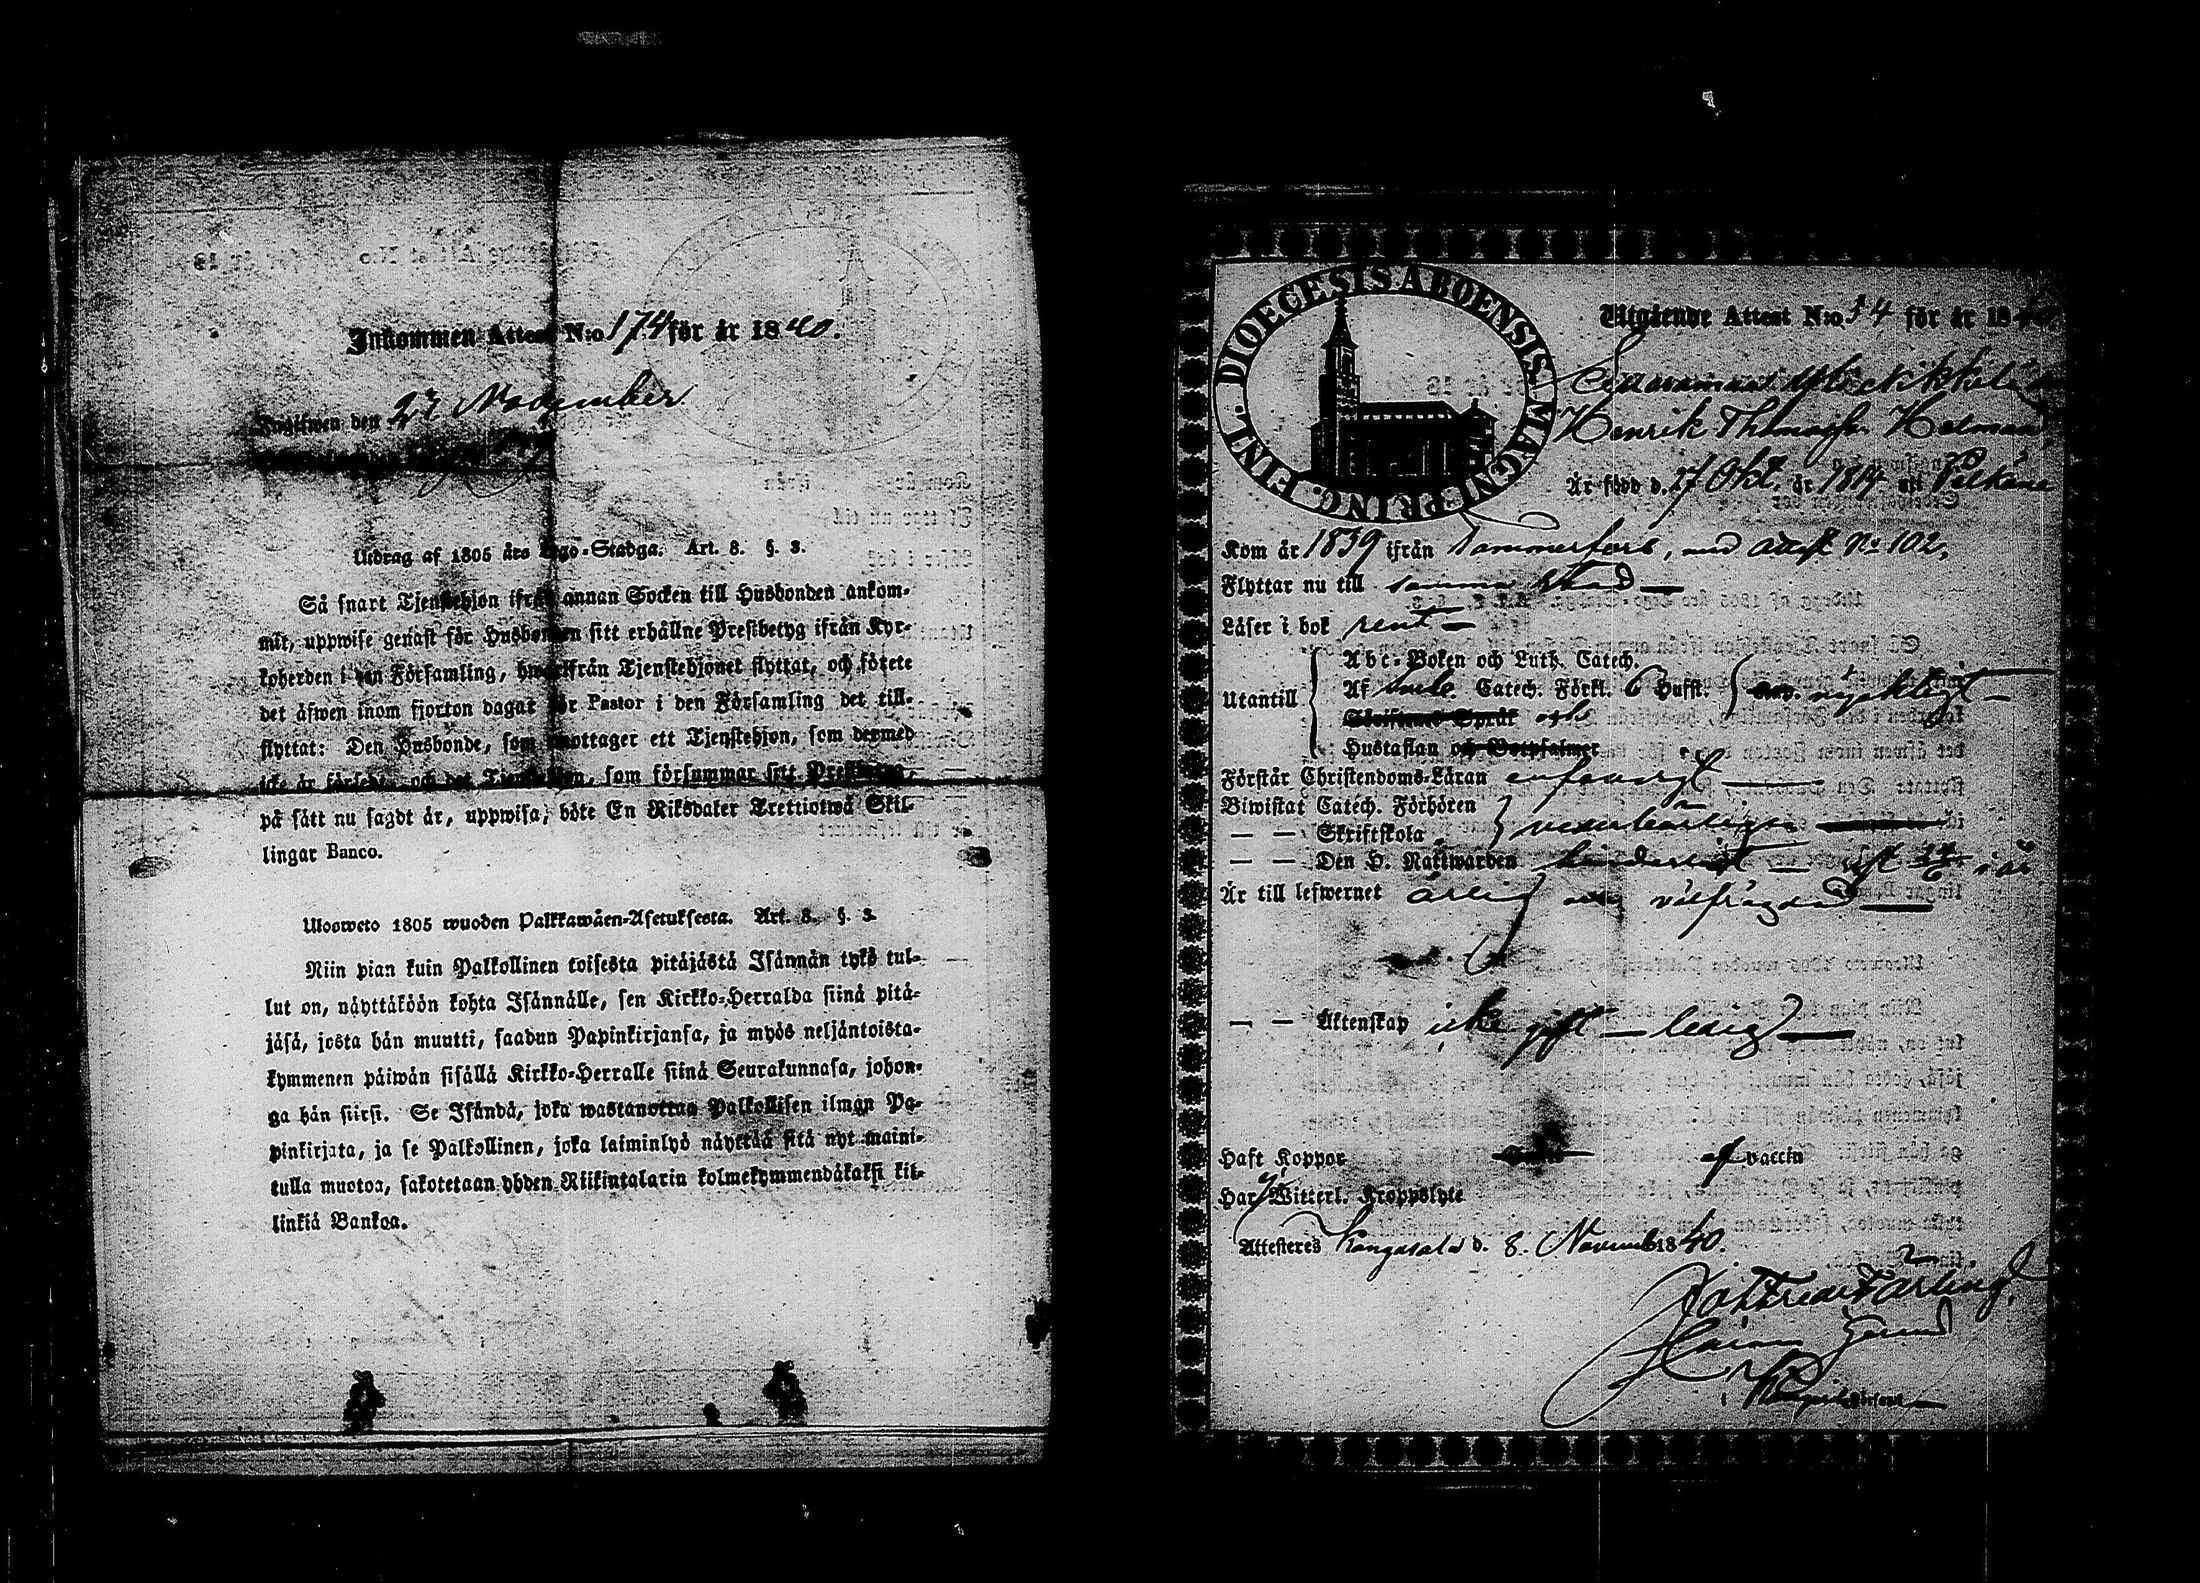 Inkommen Attest N:o 174 för år 1840.
Ingifwen den 27 November
Utdrag af 1805 års Lego-Stadga. Art. 8. §. 3.
Så snart Tjenstehjon ifrån annan Socken till Husbonden ankom-
mit, uppwise genast för Husbonden sitt erhållne Prestbetyg ifrån Kyr-
koherden i den Församling, hwarifrån Tjenstehjonet flyttat, och förete
det äfwen inom fjorton dagar för Pastor i den Församling det till-
flyttat: Den Husbonde, som emottager ett Tjenstehjon, som dermed
icke är försedt, och det Tjenstehjon, som försummar sitt
på sätt nu sagdt är, uppwisa, böte En Riksdaler Trettiotwå Skil-
lingar Banco.
Ulosweto 1805 wuoden Palkkawäen-Asetuksesta. Art. 8. §. 3.
Niin pian kuin Palkollinen toisesta pitäjästä Isännän tykö tul-
lut on, näyttäköön kohta Isännälle, sen Kirkko-Herralda siinä pitä-
jäsä, josta hän muutti, saadun Papinkirjansa, ja myös neljäntoista-
kymmenen päiwän sisällä Kirkko-Herralle siinä Seurakunnasa, johon-
ga hän siirsi. Se Isändä, joka wastanottaa Palkollisen ilman Pa-
pinkirjata, ja se Palkollinen, joka laiminlyö näyttää sitä nyt maini-
tulla muotoa, sakotetaan yhden Riikintalarin kolmekymmendäkaksi kil-
linkiä Bankoa.
DIOECESIS ABOENSIS MAGNI PRINC. FINL.
Utgående Attest N:o 34 för år 18
Henrik Thomasson
Är född d. 27 Okt. år 1814 uti Pelkäne
Kom år 1839 ifrån Tammerfors, med attest No 102,
Flyttar nu till samma stad —
Läser i bok rent —
Utantill
Abc-Boken och Luth. Catech.
Af Catech. Förkl. 6 Hufst.
Skriftens Språk och
Hustaflan och Botpsalmer
nöjaktigt —
Förstår Christendoms-Läran enfaldigt —
Biwistat Catech. Förhören
— — Skriftskola
vederbörligen —
— — Den H. Nattwarden i år
Är till lefwernet ärlig och välfrägdad —
— — Äktenskap icke gift — ledig —
Haft Koppor af vaccin
Har Witterl. Kroppslyte
Attesteras Kangasala d. 8. Novemb 1840.